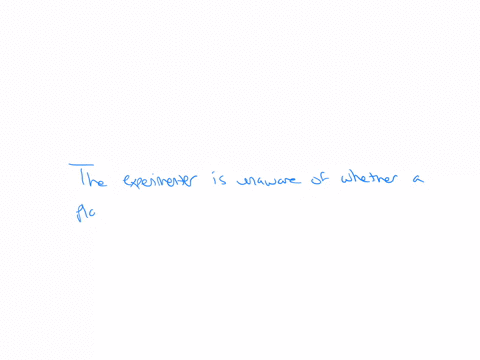 The experimenter is unaware of whether a
pla